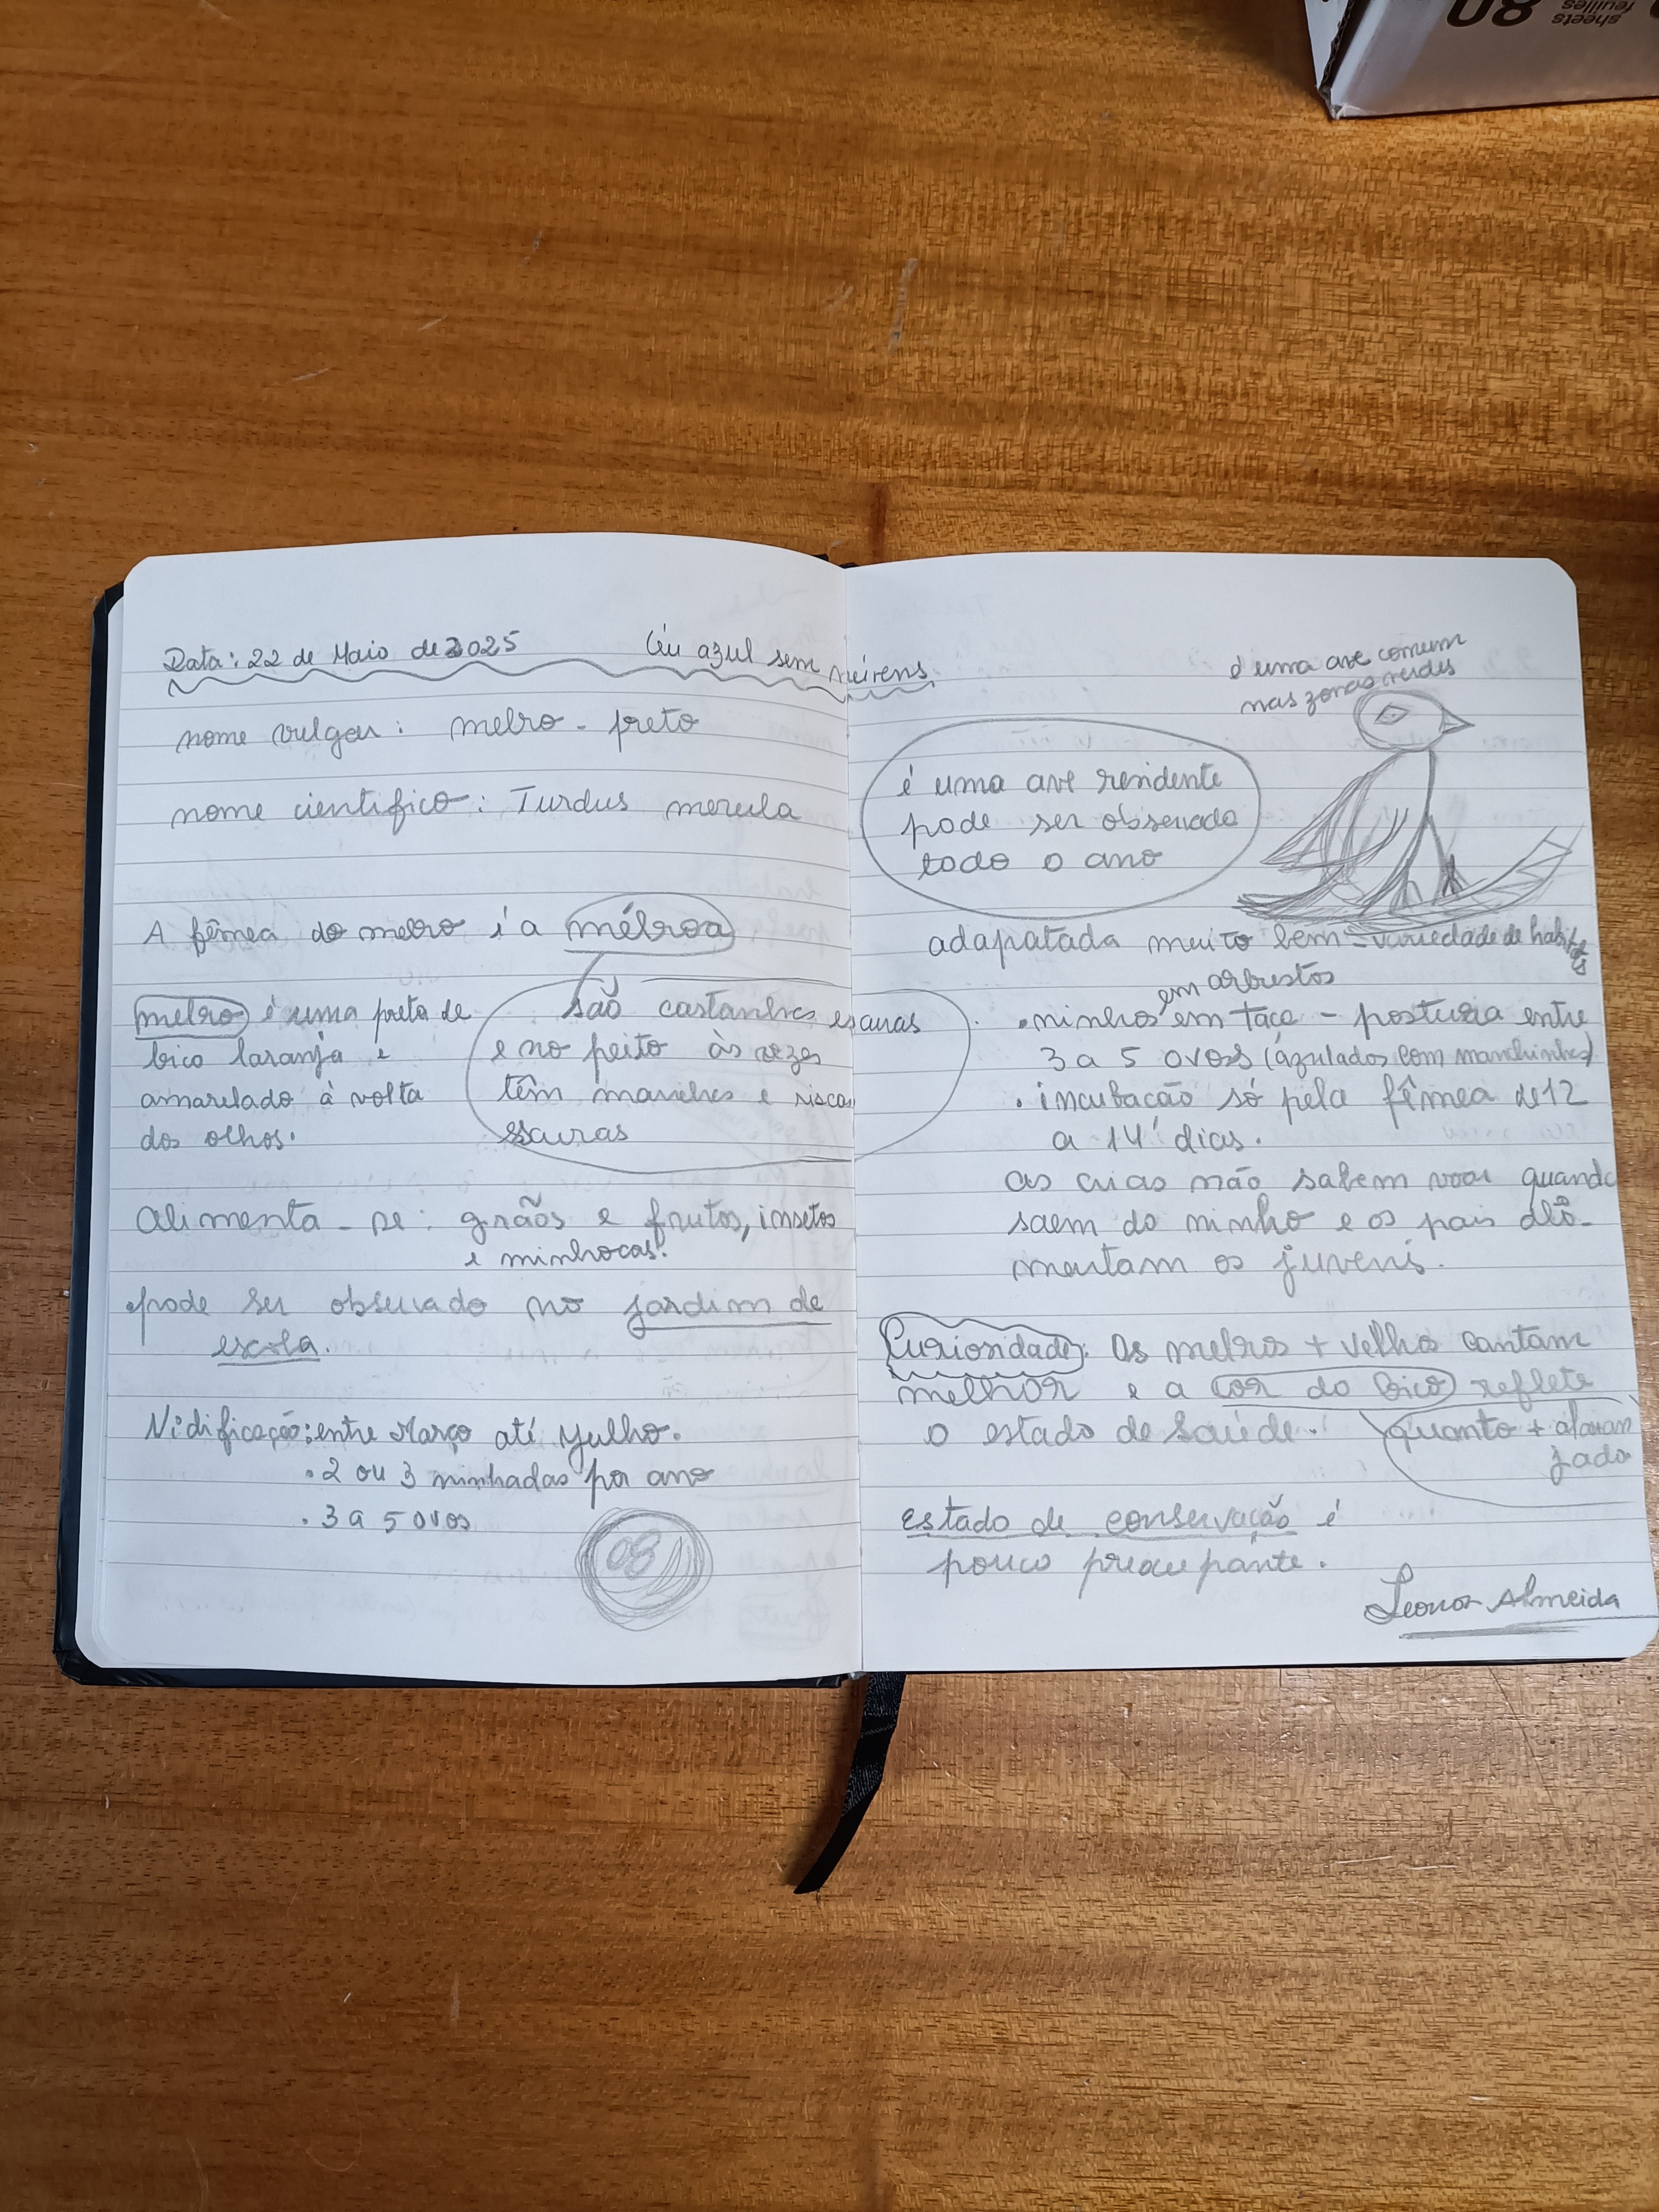 80 sheets
feuilles
Data: 22 de Maio de 2025
Céu azul sem núvens
nome vulgar: melro-preto
nome cientifico: Turdus merula
A fêmea do melro é a mélroa
melro é uma preta de
bico laranja e
amarelado à volta
dos olhos.
são castanhas escuras
e no peito às vezes
têm manchas e riscas
escuras
Alimenta-se: grãos e frutos, insetos
e minhocas.
pode ser observado no jardim de
escola.
Nidificação: entre Março até Julho.
• 2 ou 3 ninhadas por ano
• 3 a 5 ovos
08
é uma ave comum
nas zonas verdes
é uma ave residente
pode ser observada
todo o ano
adapatada muito bem = variedade de habitats
em arbustos
• ninhos em taça - postura entre
3 a 5 ovos (azulados com manchinhas)
• incubação só pela fêmea de 12
a 14 dias.
as crias não sabem voar quando
saem do ninho e os pais
os juvens.
Curiosidade: Os melros + velhos cantam
melhor e a cor do bico reflete
o estado de saúde.
quanto + alaran
jado
Estado de conservação é
pouco preocupante.
Leonor Almeida